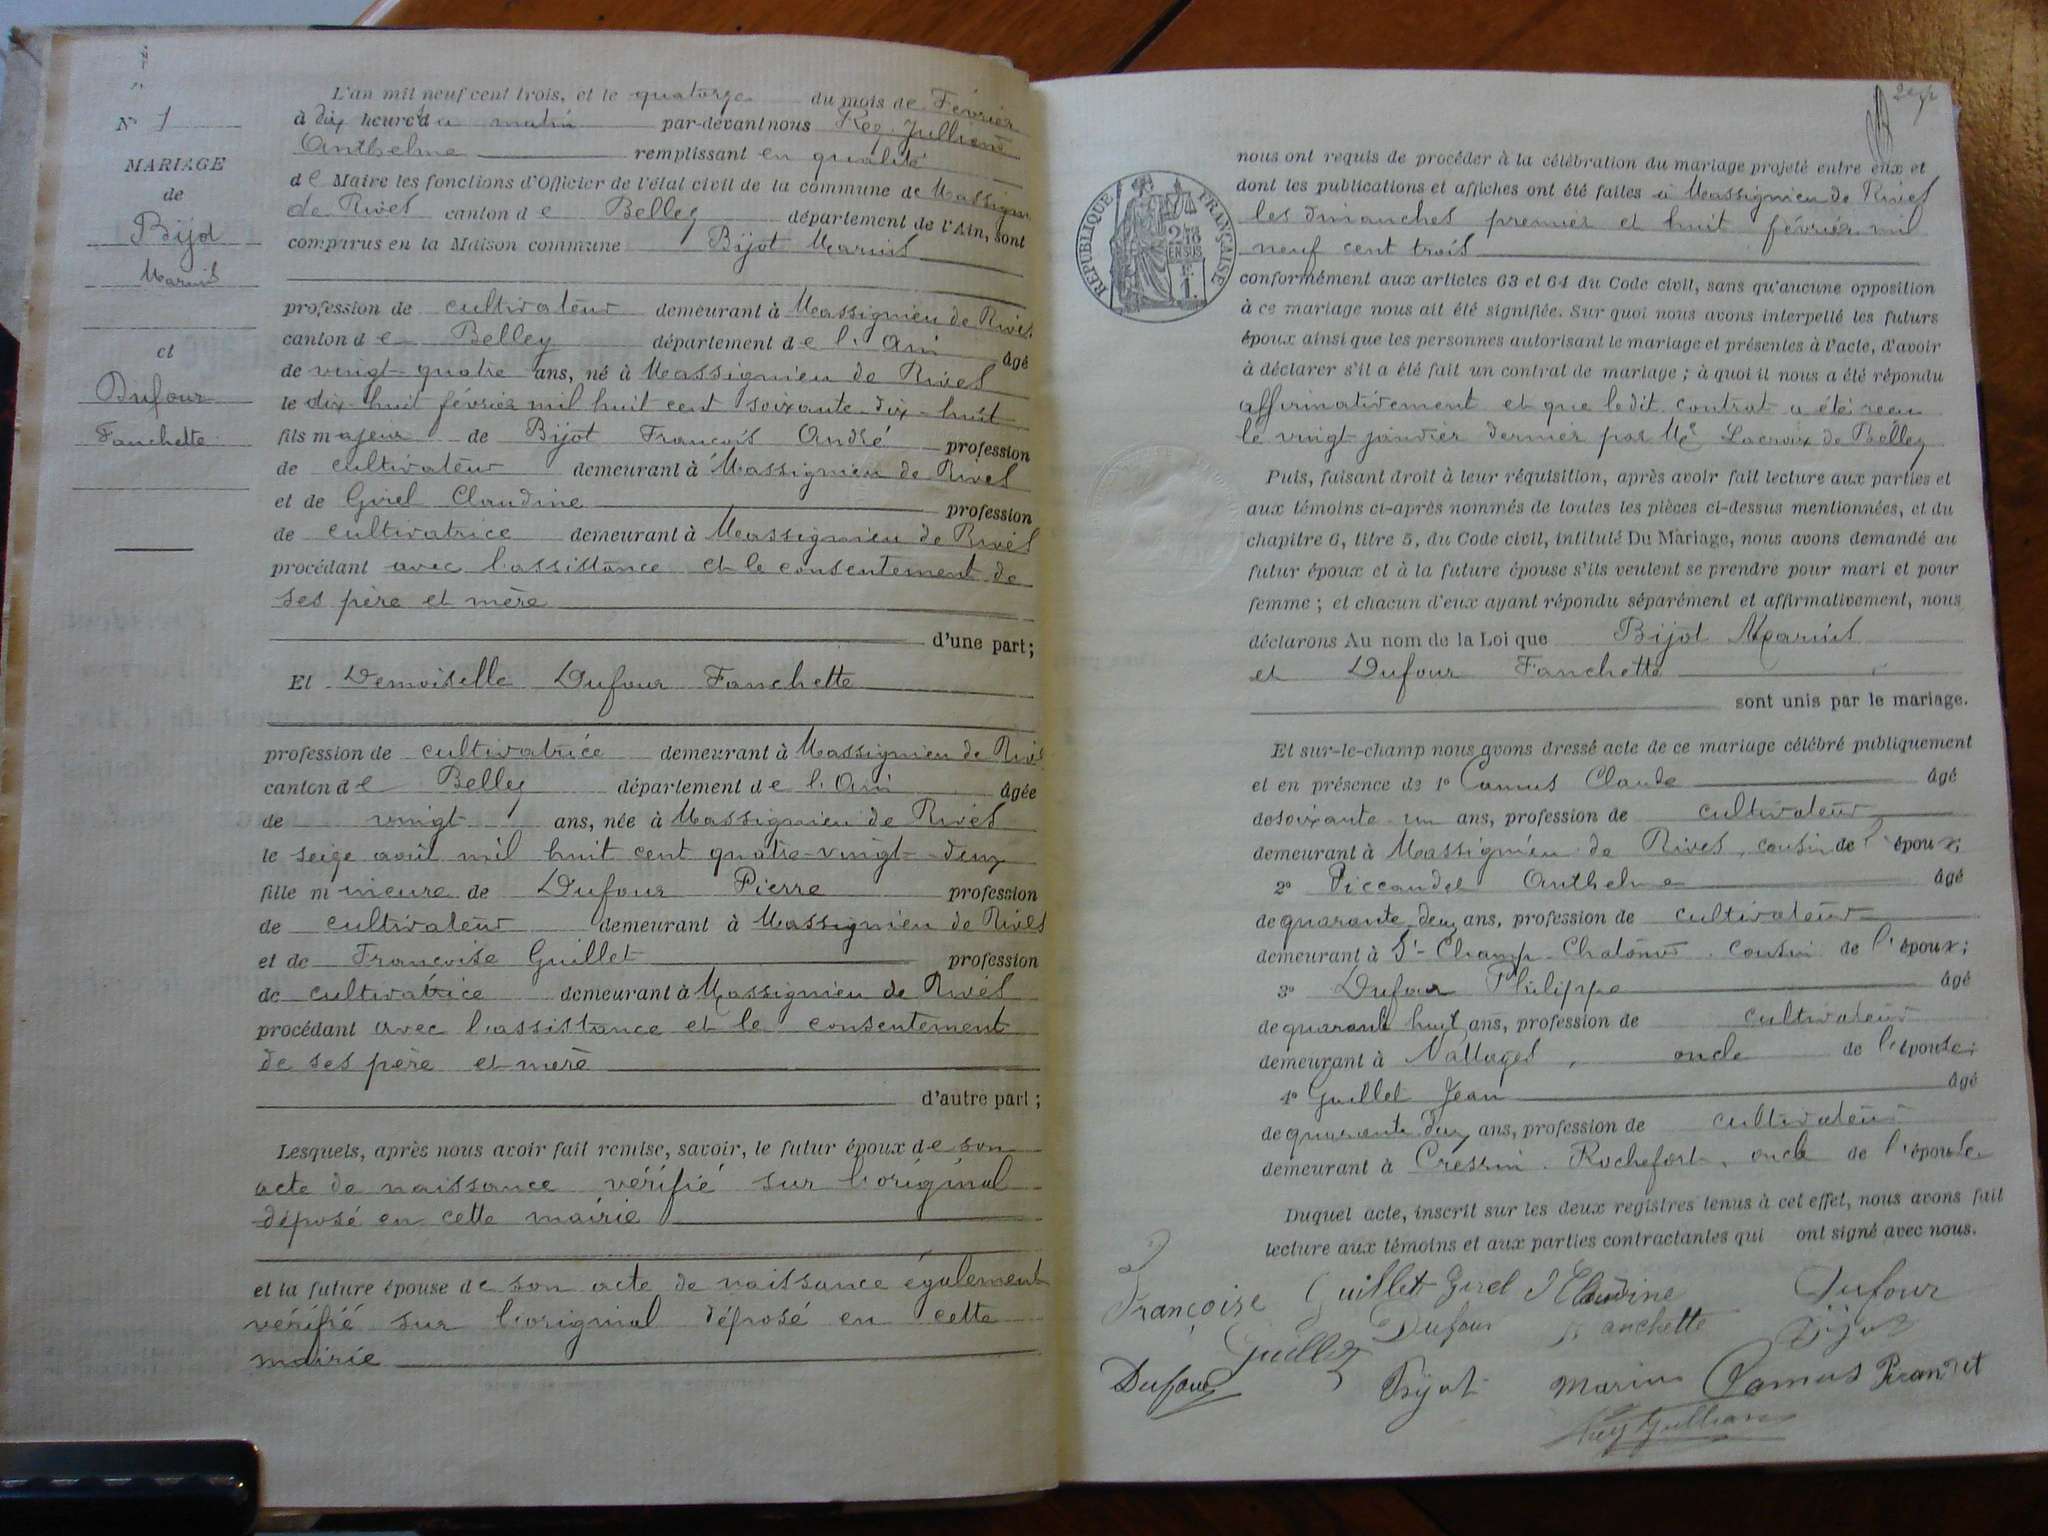 N° 1
MARIAGE
de
Bijot
Marius
et
Dufour
Fanchette
L'an mil neuf cent trois, et le quatorze du mois de Février
à dix heures du matin par-devant nous Rey-Jullien
Anthelme remplissant en qualité
de Maire les fonctions d'Officier de l'état civil de la commune de Massignieu
de Rives canton de Belley département de l'Ain, sont
comparus en la Maison commune Bijot Marius
profession de cultivateur demeurant à Massignieu de Rives
canton de Belley département de l'Ain âgé
de vingt-quatre ans, né à Massignieu de Rives
le dix-huit février mil huit cent soixante dix-huit
fils majeur de Bijot François André profession
de cultivateur demeurant à Massignieu de Rives
et de Girel Claudine profession
de cultivatrice demeurant à Massignieu de Rives
procédant avec l'assistance et le consentement de
ses père et mère
d'une part;
Et Demoiselle Dufour Fanchette
profession de cultivatrice demeurant à Massignieu de Rives
canton de Belley département de l'Ain âgée
de vingt ans, née à Massignieu de Rives
le seize août mil huit cent quatre-vingt-deux
fille mineure de Dufour Pierre profession
de cultivateur demeurant à Massignieu de Rives
et de Françoise Guillet profession
de cultivatrice demeurant à Massignieu de Rives
procédant avec l'assistance et le consentement
de ses père et mère
d'autre part;
Lesquels, après nous avoir fait remise, savoir, le futur époux de son
acte de naissance vérifié sur l'original
déposé en cette mairie
et la future épouse de son acte de naissance également
vérifié sur l'original déposé en cette
mairie
nous ont requis de procéder à la célébration du mariage projeté entre eux et
dont les publications et affiches ont été faites à Massignieu de Rives
les dimanches premier et huit février mil
neuf cent trois
conformément aux articles 63 et 64 du Code civil, sans qu'aucune opposition
à ce mariage nous ait été signifiée. Sur quoi nous avons interpellé les futurs
époux ainsi que les personnes autorisant le mariage et présentes à l'acte, d'avoir
à déclarer s'il a été fait un contrat de mariage; à quoi il nous a été répondu
affirmativement et que ledit contrat a été reçu
le vingt janvier dernier par Me Lacroix de Belley
Puis, faisant droit à leur réquisition, après avoir fait lecture aux parties et
aux témoins ci-après nommés de toutes les pièces ci-dessus mentionnées, et du
chapitre 6, titre 5, du Code civil, intitulé Du Mariage, nous avons demandé au
futur époux et à la future épouse s'ils veulent se prendre pour mari et pour
femme; et chacun d'eux ayant répondu séparément et affirmativement, nous
déclarons Au nom de la Loi que Bijot Marius
et Dufour Fanchette
sont unis par le mariage.
Et sur-le-champ nous avons dressé acte de ce mariage célébré publiquement
et en présence de 1° Camus Claude âgé
de soixante-un ans, profession de cultivateur
demeurant à Massignieu de Rives, cousin de l'époux;
2° Piccandet Anthelme âgé
de quarante-deux ans, profession de cultivateur
demeurant à St-Champ-Chatonod, cousin de l'époux;
3° Dufour Philippe âgé
de quarante huit ans, profession de cultivateur
demeurant à Nattages, oncle de l'épouse;
4° Guillet Jean âgé
de quarante deux ans, profession de cultivateur
demeurant à Cressin-Rochefort, oncle de l'épouse
Duquel acte, inscrit sur les deux registres tenus à cet effet, nous avons fait
lecture aux témoins et aux parties contractantes qui ont signé avec nous.
Françoise Guillet Girel Claudine Dufour
Guillet Dufour Fanchette Bijot
Dufour Bijot Marius Camus
Rey Jullien
RÉPUBLIQUE FRANÇAISE
2/10
EN SUS